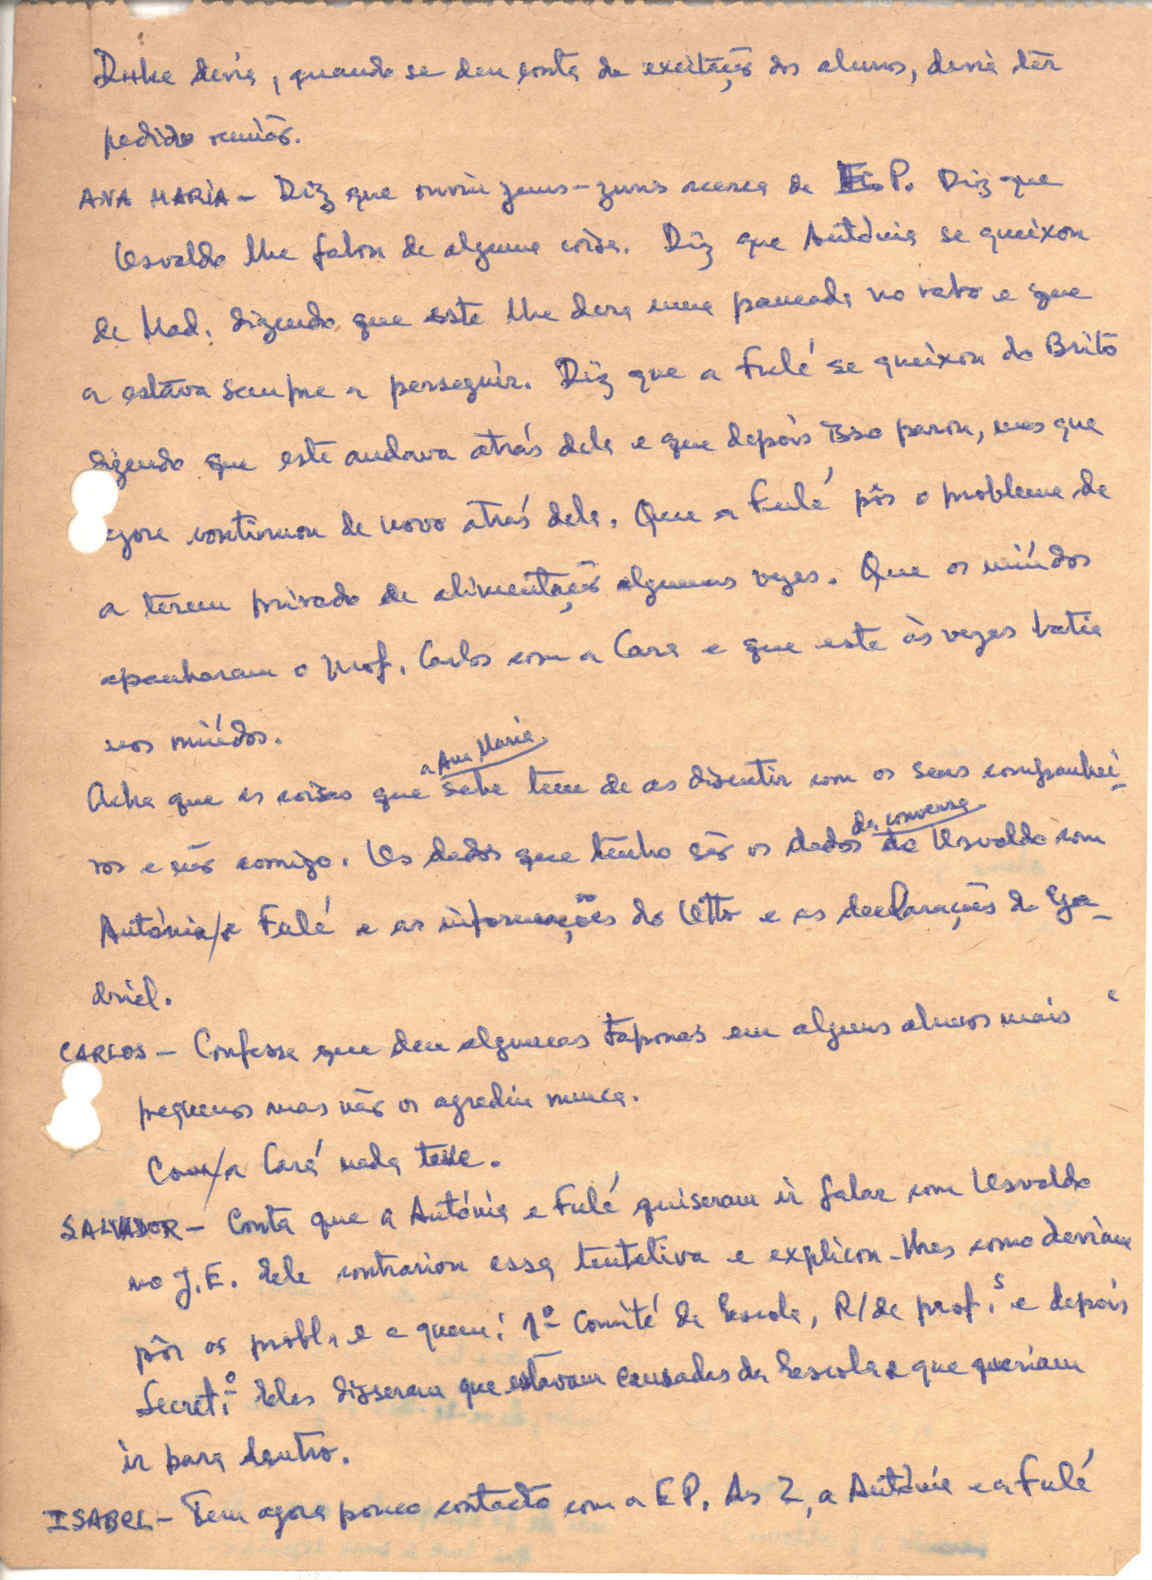 devia, quando se deu conta da excitação dos alunos, devia ter
pedido reunião.
ANA MARIA - Diz que ouviu zuns-zuns acerca da E.P. Diz que
Osvaldo lhe falou de alguma coisa. Diz que Antónia se queixou
de Mad. dizendo que este lhe dera uma pancada no rabo e que
a estava sempre a perseguir. Diz que a Fulé se queixou do Brito
dizendo que este andava atrás dela e que depois isso parou, mas que
agora continuou de novo atrás dela. Que a Fulé pôs o problema de
a terem privado de alimentação algumas vezes. Que os miúdos
apanharam o prof. Carlos com a Cara e que este às vezes batia
nos miúdos.
Acha que as coisas que a Ana Maria sabe tem de as discutir com os seus companhei-
ros e não comigo. Os dados que tenho são os dados da conversa do Osvaldo com
Antónia/e Fulé e as informações do Otto e as declarações do Ga-
briel.
CARLOS - Confessa que deu algumas taponas em alguns alunos mais
pequenos mas não os agrediu nunca.
Com/a Cará nada teve.
SALVADOR - Conta que a Antónia e Fulé quiseram ir falar com Osvaldo
no J.E. Ele contrariou essa tentativa e explicou-lhes como deviam
pôr os probl. e a quem: 1º Comité da Escola, R/de prof.s e depois
Secret.º Elas disseram que estavam cansadas da Escola e que queriam
ir para dentro.
ISABEL - Tem agora pouco contacto com a E P. As 2, a Antónia e a Fulé